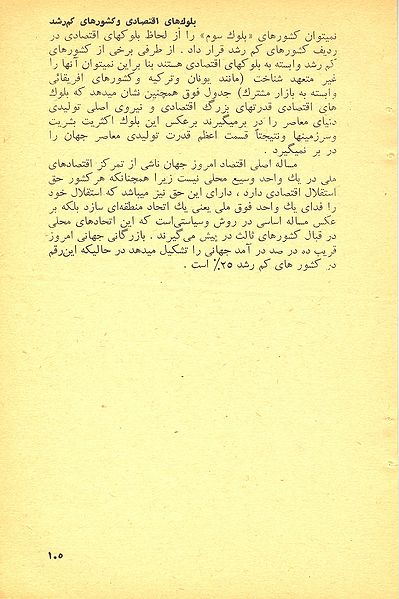 بلوك‌های اقتصادی وکشورهای کم‌رشد
نمیتوان کشورهای «بلوك سوم» را از لحاظ بلوکهای اقتصادی در
ردیف کشورهای کم رشد قرار داد . از طرفی برخی از کشورهای
کم رشد وابسته به بلوکهای اقتصادی هستند بنا براین نمیتوان آنها را
غیر متعهد شناخت (مانند یونان وترکیه وکشورهای افریقائی
وابسته به بازار مشترك) جدول فوق همچنین نشان میدهد که بلوك
های اقتصادی قدرتهای بزرگ اقتصادی و نیروی اصلی تولیدی
دنیای معاصر را در برمیگیرند برعکس این بلوك اکثریت بشریت
وسرزمینها ونتیجتاً قسمت اعظم قدرت تولیدی معاصر جهان را
در بر نمیگیرد .
مساله اصلی اقتصاد امروز جهان ناشی از تمرکز اقتصادهای
ملی در یك واحد وسیع محلی نیست زیرا همچنانکه هر کشور حق
استقلال اقتصادی دارد ، دارای این حق نیز میباشد که استقلال خود
را فدای یك واحد فوق ملی یعنی یك اتحاد منطقه‌ای سازد بلکه بر
عکس مساله اساسی در روش وسیاستی‌است که این اتحادهای محلی
در قبال کشورهای ثالث در پیش می‌گیرند . بازرگانی جهانی امروز
قریب ده در صد در آمد جهانی را تشکیل میدهد در حالیکه این‌رقم
در کشور های کم رشد ۲۵٪ است .
۱۰۵